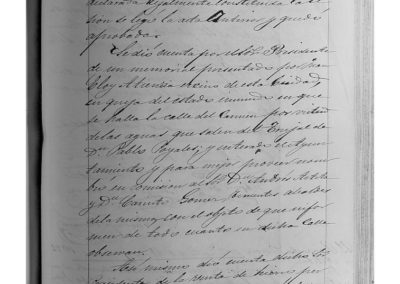 declarada legalmente constituida la se-
sion se leyó la acta anterior y quedó
aprobada.
Se dió cuenta por el Sor. Presidente
de un memorial presentado por Juan
Eloy Atienza vecino de esta Ciudad,
en queja del estado inmundo en que
se halla la calle del Carmen por virtud
de las aguas que salen del Trujal de
Dn. Pablo Pujales; y enterado el Ayun-
tamiento y para mejor proveer nom-
bró en comision al Sor. Dn. Andres
y Dn. Camilo Gomez
de la misma, con el objeto de que infor-
men de todo cuanto en dicha calle
observan.
Asi mismo dió cuenta dicho Sor.
Presidente de la venta de